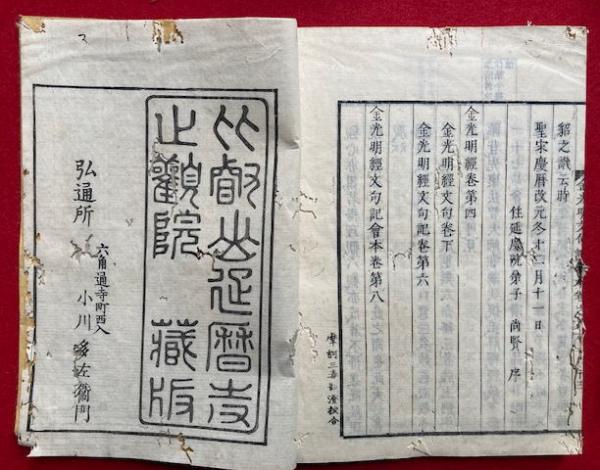 貂之譏云時
聖宋慶曆改元冬十月十一日
住延慶院弟子 尚賢 序
金光明經卷第四
金光明經文句卷下
金光明經文句記卷第六
金光明經文句記會本卷第八
比叡山延曆寺
止觀院 藏版
弘通所
六角通寺町西入
小川多左衞門